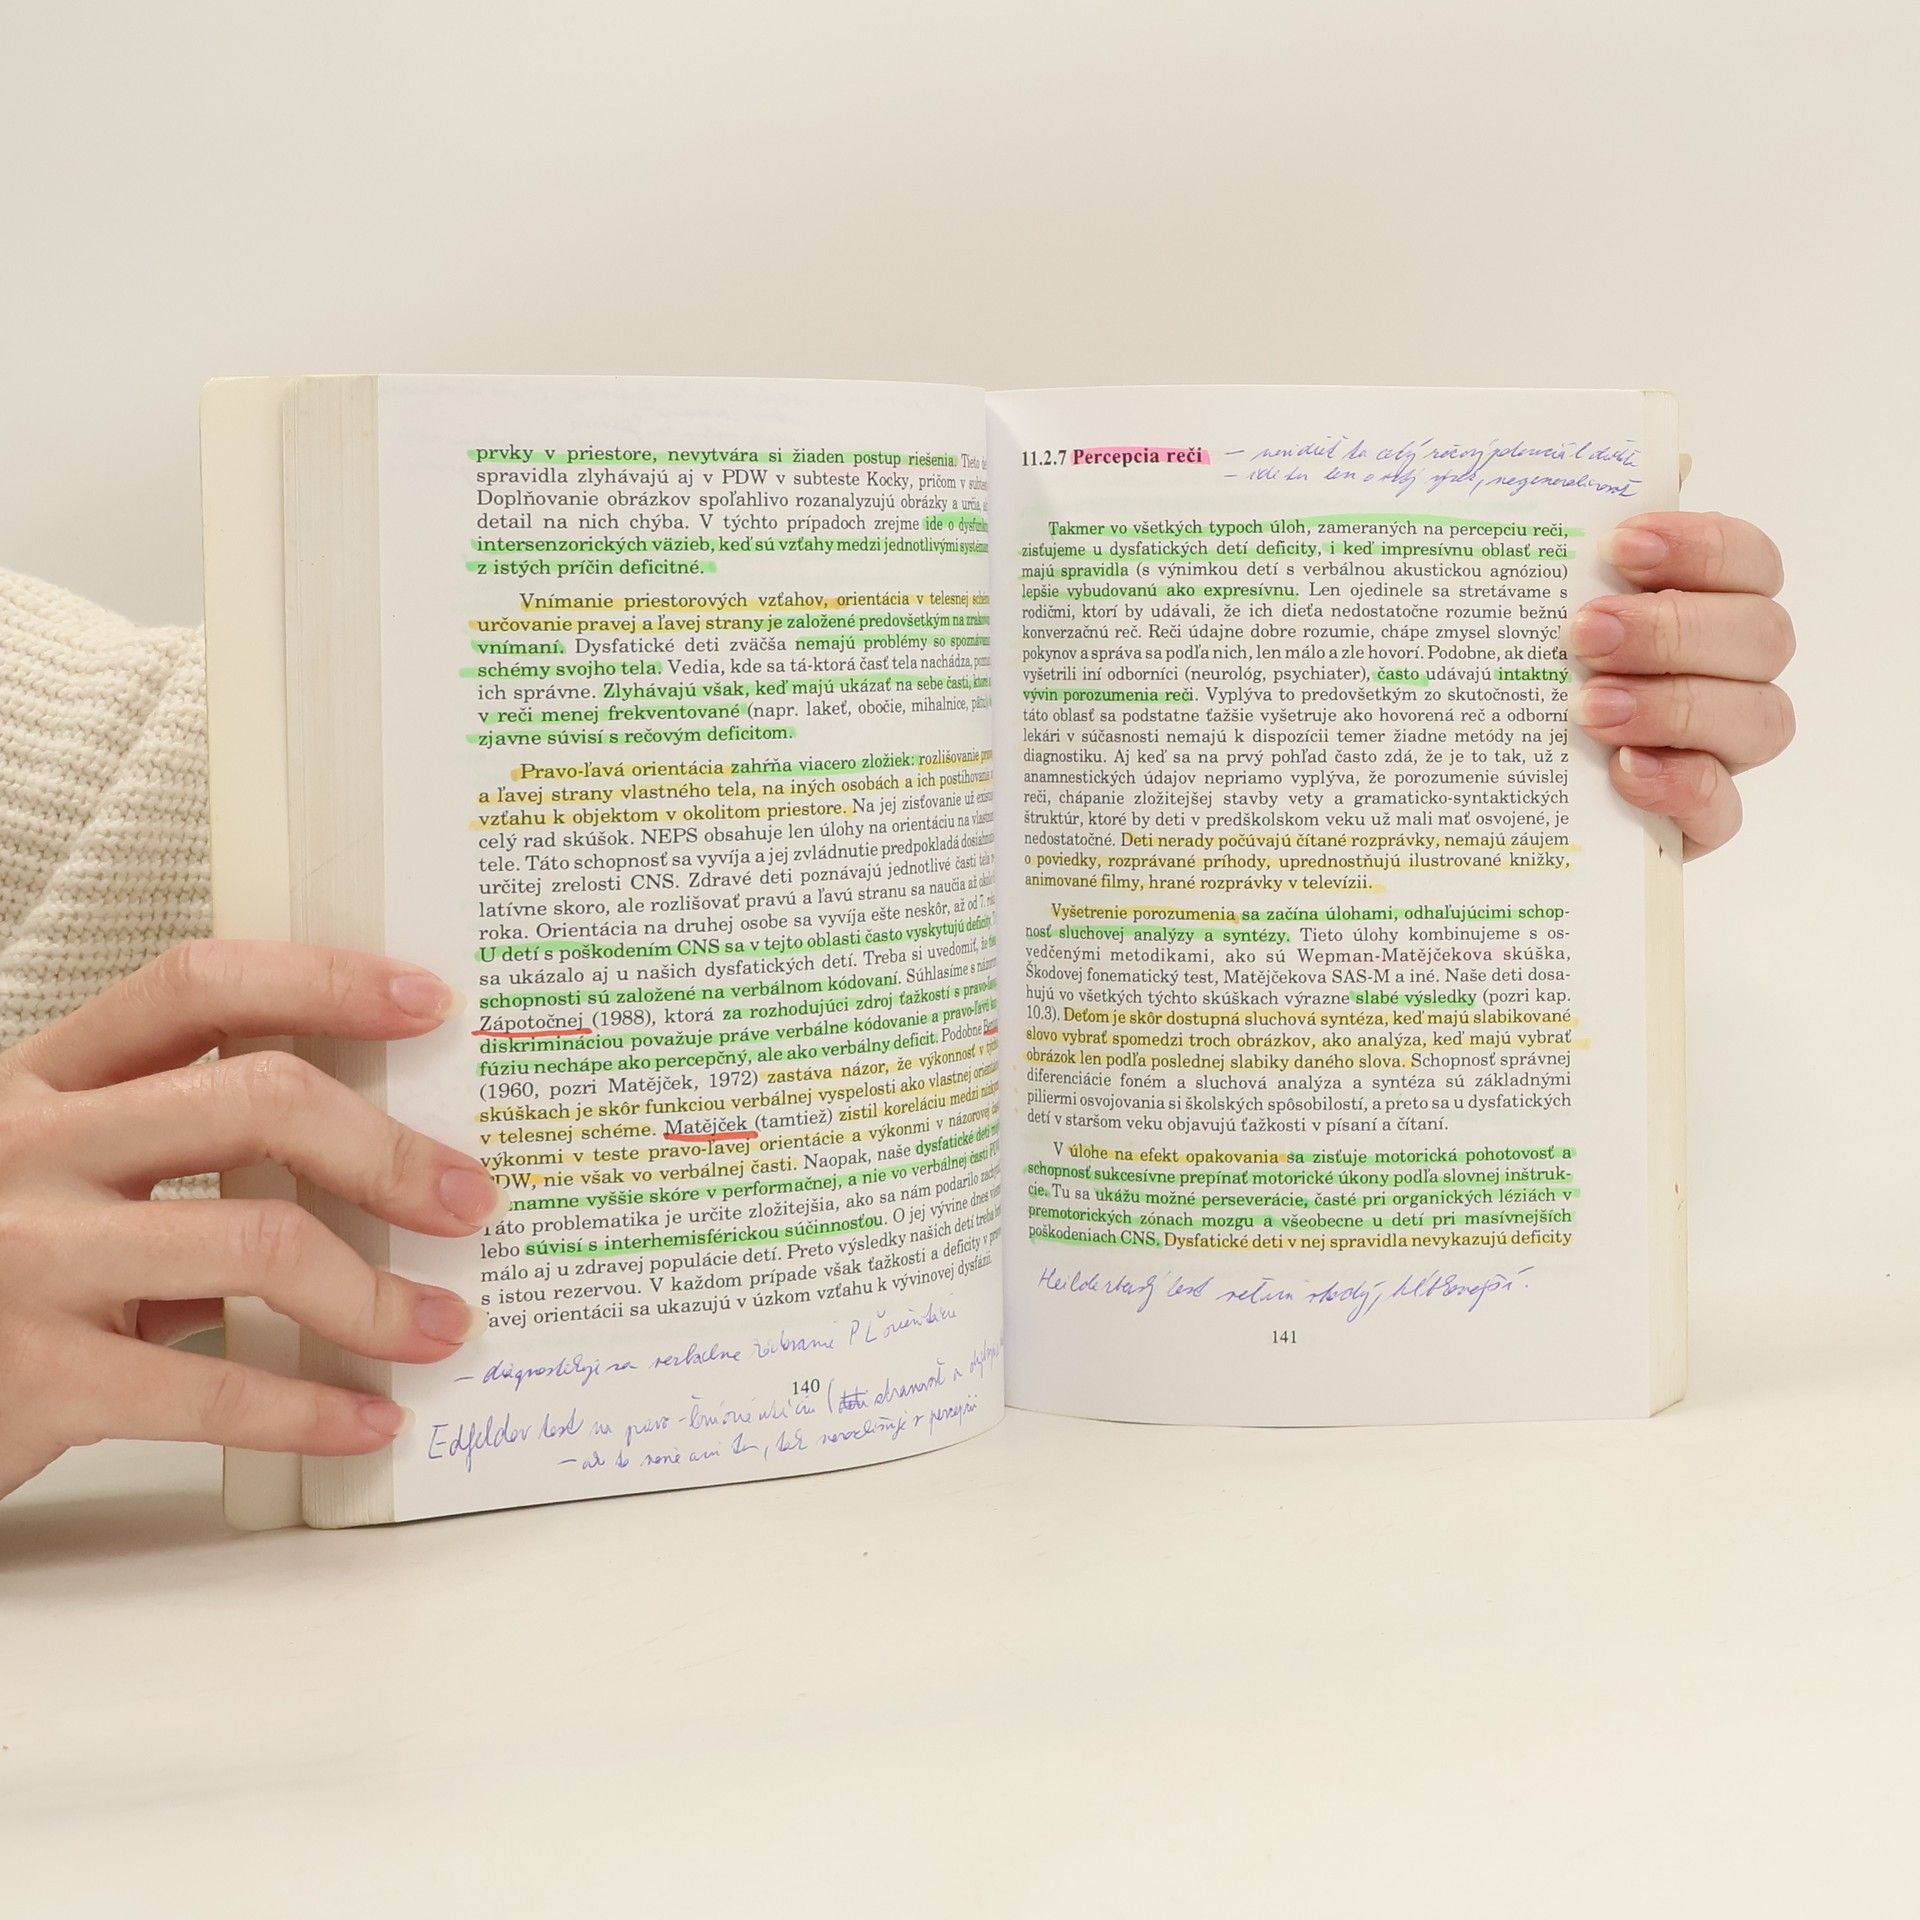 prvky v priestore, nevytvára si žiaden postup riešenia. Tieto
spravidla zlyhávajú aj v PDW v subteste Kocky, pričom v
Doplňovanie obrázkov spoľahlivo rozanalyzujú obrázky a určia,
detail na nich chýba. V týchto prípadoch zrejme ide o
intersenzorických väzieb, keď sú vzťahy medzi jednotlivými
z istých príčin deficitné.
Vnímanie priestorových vzťahov, orientácia v telesnej
určovanie pravej a ľavej strany je založené predovšetkým na
vnímaní. Dysfatické deti zväčša nemajú problémy so
schémy svojho tela. Vedia, kde sa tá-ktorá časť tela nachádza,
ich správne. Zlyhávajú však, keď majú ukázať na sebe časti,
v reči menej frekventované (napr. lakeť, obočie, mihalnice,
zjavne súvisí s rečovým deficitom.
Pravo-ľavá orientácia zahŕňa viacero zložiek: rozlišovanie
a ľavej strany vlastného tela, na iných osobách a ich postihovania
vzťahu k objektom v okolitom priestore. Na jej zisťovanie už
celý rad skúšok. NEPS obsahuje len úlohy na orientáciu na
tele. Táto schopnosť sa vyvíja a jej zvládnutie predpokladá
určitej zrelosti CNS. Zdravé deti poznávajú jednotlivé časti tela
latívne skoro, ale rozlišovať pravú a ľavú stranu sa naučia až
roka. Orientácia na druhej osobe sa vyvíja ešte neskôr, až od 7.
U detí s poškodením CNS sa v tejto oblasti často vyskytujú deficity.
sa ukázalo aj u našich dysfatických detí. Treba si uvedomiť, že
schopnosti sú založené na verbálnom kódovaní. Súhlasíme s
Zápotočnej (1988), ktorá za rozhodujúci zdroj ťažkostí s
diskrimináciou považuje práve verbálne kódovanie a pravo-ľavú
fúziu nechápe ako percepčný, ale ako verbálny deficit. Podobne
(1960, pozri Matějček, 1972) zastáva názor, že výkonnosť v
skúškach je skôr funkciou verbálnej vyspelosti ako vlastnej
v telesnej schéme. Matějček (tamtiež) zistil koreláciu medzi
výkonmi v teste pravo-ľavej orientácie a výkonmi v názorovej
PDW, nie však vo verbálnej časti. Naopak, naše dysfatické deti
znamne vyššie skóre v performačnej, a nie vo verbálnej časti
Táto problematika je určite zložitejšia, ako sa nám podarilo
lebo súvisí s interhemisférickou súčinnosťou. O jej vývine dnes
málo aj u zdravej populácie detí. Preto výsledky našich detí treba
s istou rezervou. V každom prípade však ťažkosti a deficity v
ľavej orientácii sa ukazujú v úzkom vzťahu k vývinovej dysfázii.
– diagnostikuje sa verbálne PĽ orientácie
140
Edfeldov test na pravo-
11.2.7 Percepcia reči
– celý rečový potenciál dieťaťa
Takmer vo všetkých typoch úloh, zameraných na percepciu reči,
zisťujeme u dysfatických detí deficity, i keď impresívnu oblasť reči
majú spravidla (s výnimkou detí s verbálnou akustickou agnóziou)
lepšie vybudovanú ako expresívnu. Len ojedinele sa stretávame s
rodičmi, ktorí by udávali, že ich dieťa nedostatočne rozumie bežnú
konverzačnú reč. Reči údajne dobre rozumie, chápe zmysel slovných
pokynov a správa sa podľa nich, len málo a zle hovorí. Podobne, ak dieťa
vyšetrili iní odborníci (neurológ, psychiater), často udávajú intaktný
vývin porozumenia reči. Vyplýva to predovšetkým zo skutočnosti, že
táto oblasť sa podstatne ťažšie vyšetruje ako hovorená reč a odborní
lekári v súčasnosti nemajú k dispozícii temer žiadne metódy na jej
diagnostiku. Aj keď sa na prvý pohľad často zdá, že je to tak, už z
anamnestických údajov nepriamo vyplýva, že porozumenie súvislej
reči, chápanie zložitejšej stavby vety a gramaticko-syntaktických
štruktúr, ktoré by deti v predškolskom veku už mali mať osvojené, je
nedostatočné. Deti nerady počúvajú čítané rozprávky, nemajú záujem
o poviedky, rozprávané príhody, uprednostňujú ilustrované knižky,
animované filmy, hrané rozprávky v televízii.
Vyšetrenie porozumenia sa začína úlohami, odhaľujúcimi schop-
nosť sluchovej analýzy a syntézy. Tieto úlohy kombinujeme s os-
vedčenými metodikami, ako sú Wepman-Matějčekova skúška,
Škodovej fonematický test, Matějčekova SAS-M a iné. Naše deti dosa-
hujú vo všetkých týchto skúškach výrazne slabé výsledky (pozri kap.
10.3). Deťom je skôr dostupná sluchová syntéza, keď majú slabikované
slovo vybrať spomedzi troch obrázkov, ako analýza, keď majú vybrať
obrázok len podľa poslednej slabiky daného slova. Schopnosť správnej
diferenciácie foném a sluchová analýza a syntéza sú základnými
piliermi osvojovania si školských spôsobilostí, a preto sa u dysfatických
detí v staršom veku objavujú ťažkosti v písaní a čítaní.
V úlohe na efekt opakovania sa zisťuje motorická pohotovosť a
schopnosť sukcesívne prepínať motorické úkony podľa slovnej inštruk-
cie. Tu sa ukážu možné perseverácie, časté pri organických léziách v
premotorických zónach mozgu a všeobecne u detí pri masívnejších
poškodeniach CNS. Dysfatické deti v nej spravidla nevykazujú deficity
test
141